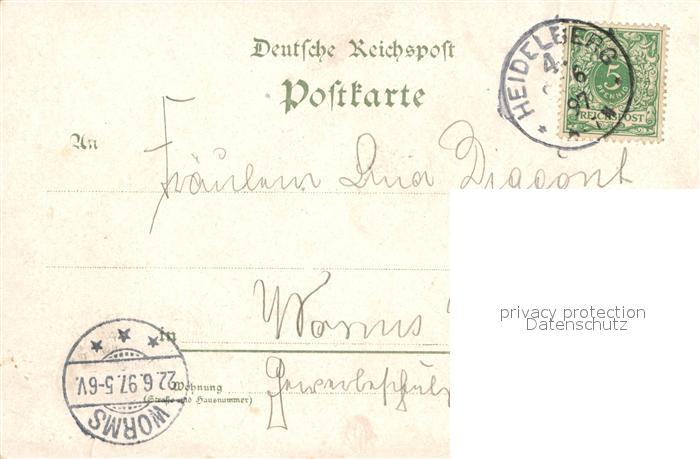 Deutsche Reichspost
Postkarte
HEIDELBERG
4
6
97
5
PFENNIG
REICHSPOST
An
Fräulein
privacy protection
Datenschutz
in
Worms
WORMS
22.6.97.5-6V.
Wohnung
(Straße und Hausnummer)